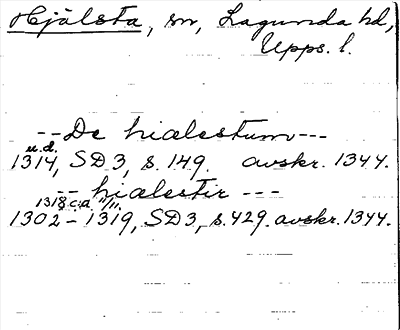 Hjälsta, sn, Lagunda hd,
Upps. l.
-- De hialestum ---
u.d.
1314, SD 3, s. 149. avskr. 1344.
-- hialestir ---
1318 c:a 11/11.
1302 - 1319, SD 3, s. 429. avskr. 1344.